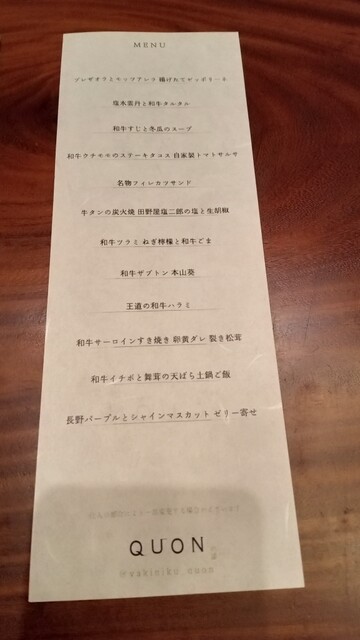 MENU
ブレザオラとモッツアレラ 揚げたてゼッポリーネ
塩水雲丹と和牛タルタル
和牛すじと冬瓜のスープ
和牛ウチモモのステーキタコス 自家製トマトサルサ
名物フィレカツサンド
牛タンの炭火焼 田野屋塩二郎の塩と生胡椒
和牛ツラミ ねぎ檸檬と和牛ごま
和牛ザブトン 本山葵
王道の和牛ハラミ
和牛サーロインすき焼き 卵黄ダレ 裂き松茸
和牛イチボと舞茸の天ばら土鍋ご飯
長野パープルとシャインマスカット ゼリー寄せ
QUON
@yakiniku_quon